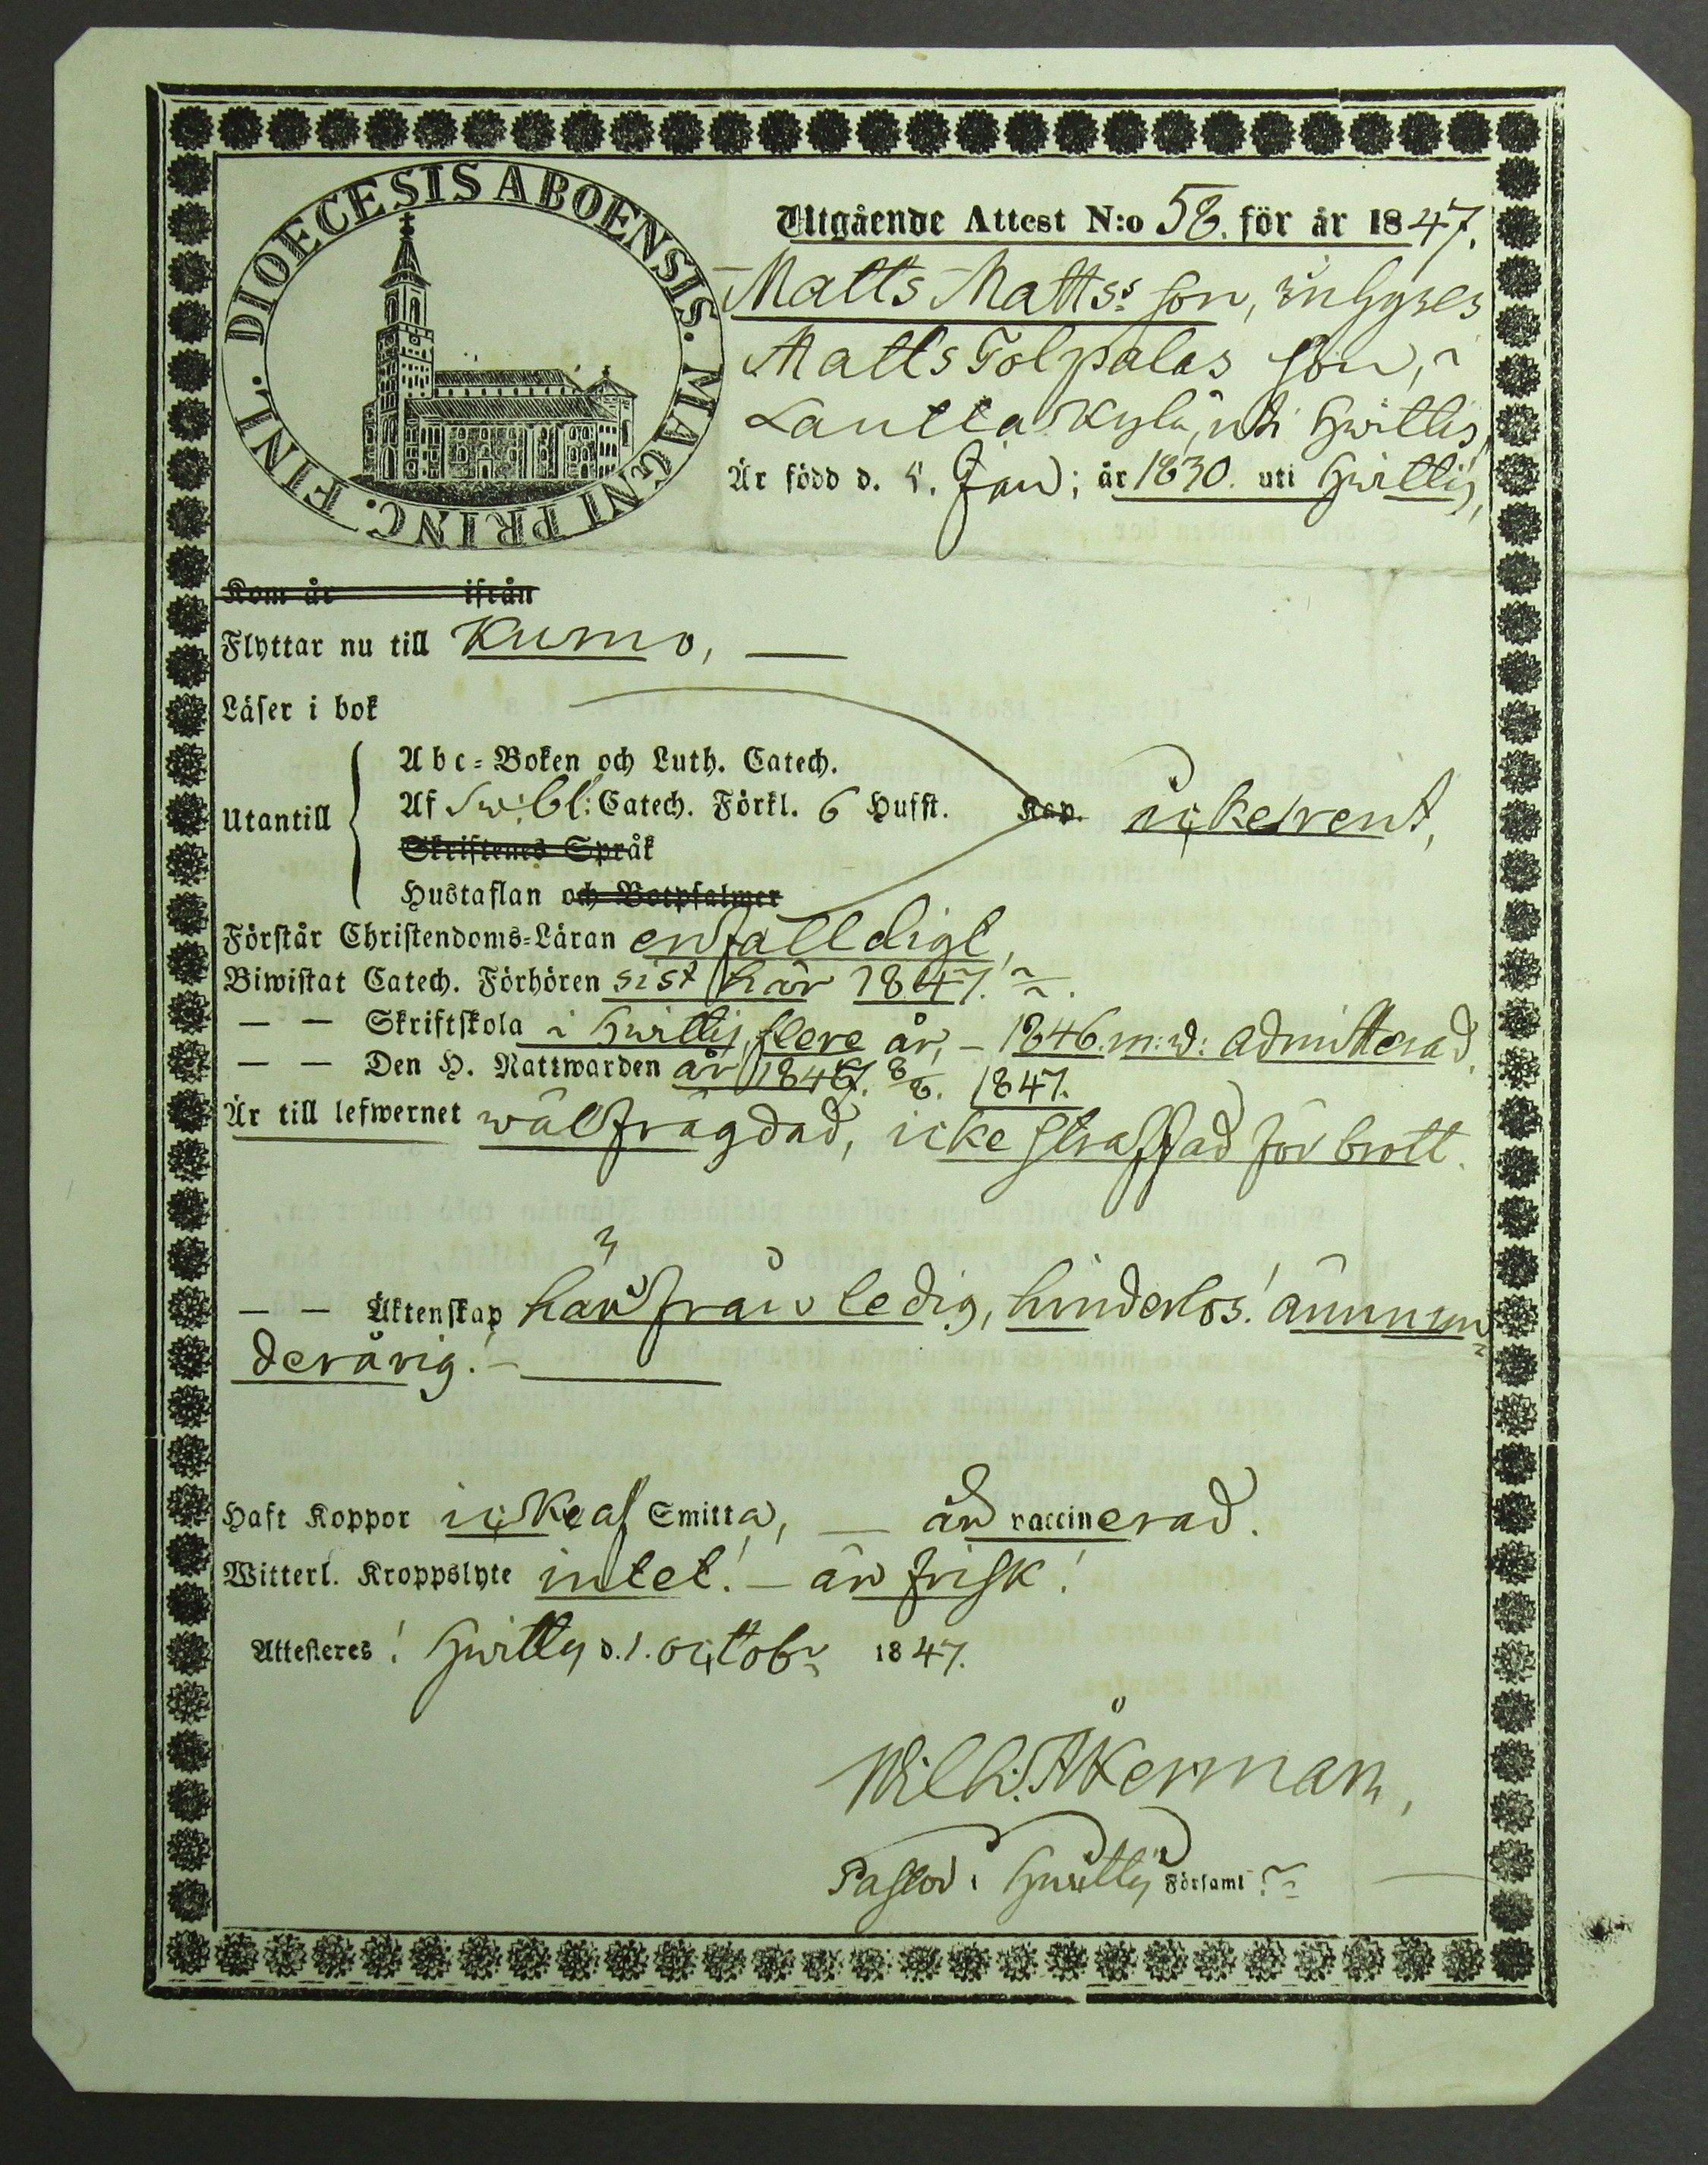 DIOECESIS ABOENSIS. MAGNI PRINC. FINL.
Utgående Attest N:o 58. för år 1847.
Matts Matts:s son, inhyses
Matts Tolpalas son, i
Lautta Kylä, uti Hwittis,
Är född d. 5. Jan; år 1830. uti Hwittis,
Kom år ifrån
Flyttar nu till Kumo, —
Läser i bok
Utantill
Abc-Boken och Luth. Catech.
Af Sweb: Catech. Förkl. 6 Hufst. Kap. icke rent,
Skriftenes Språk
Hustaflan och Botpsalmer
Förstår Christendoms-Läran enfalldigt,
Biwistat Catech. Förhören sist här 1847.
— — Skriftskola i Hwittis, flere år, – 1846. m: w: admitterad.
— — Den H. Nattwarden år 1847. 8/8. 1847.
Är till lefwernet wälfrägdad, icke straffad för brott.
— — Äktenskap härifrån ledig, hinderlös! ännu un
derårig! —
Haft Koppor icke af Smitta, — är vaccinerad.
Witterl. Kroppslyte intet! — är frisk!
Attesteres! Hwittis d. 1. Octob: 1847.
Wilh: Åkerman,
Pastor i Hwittis Församl: